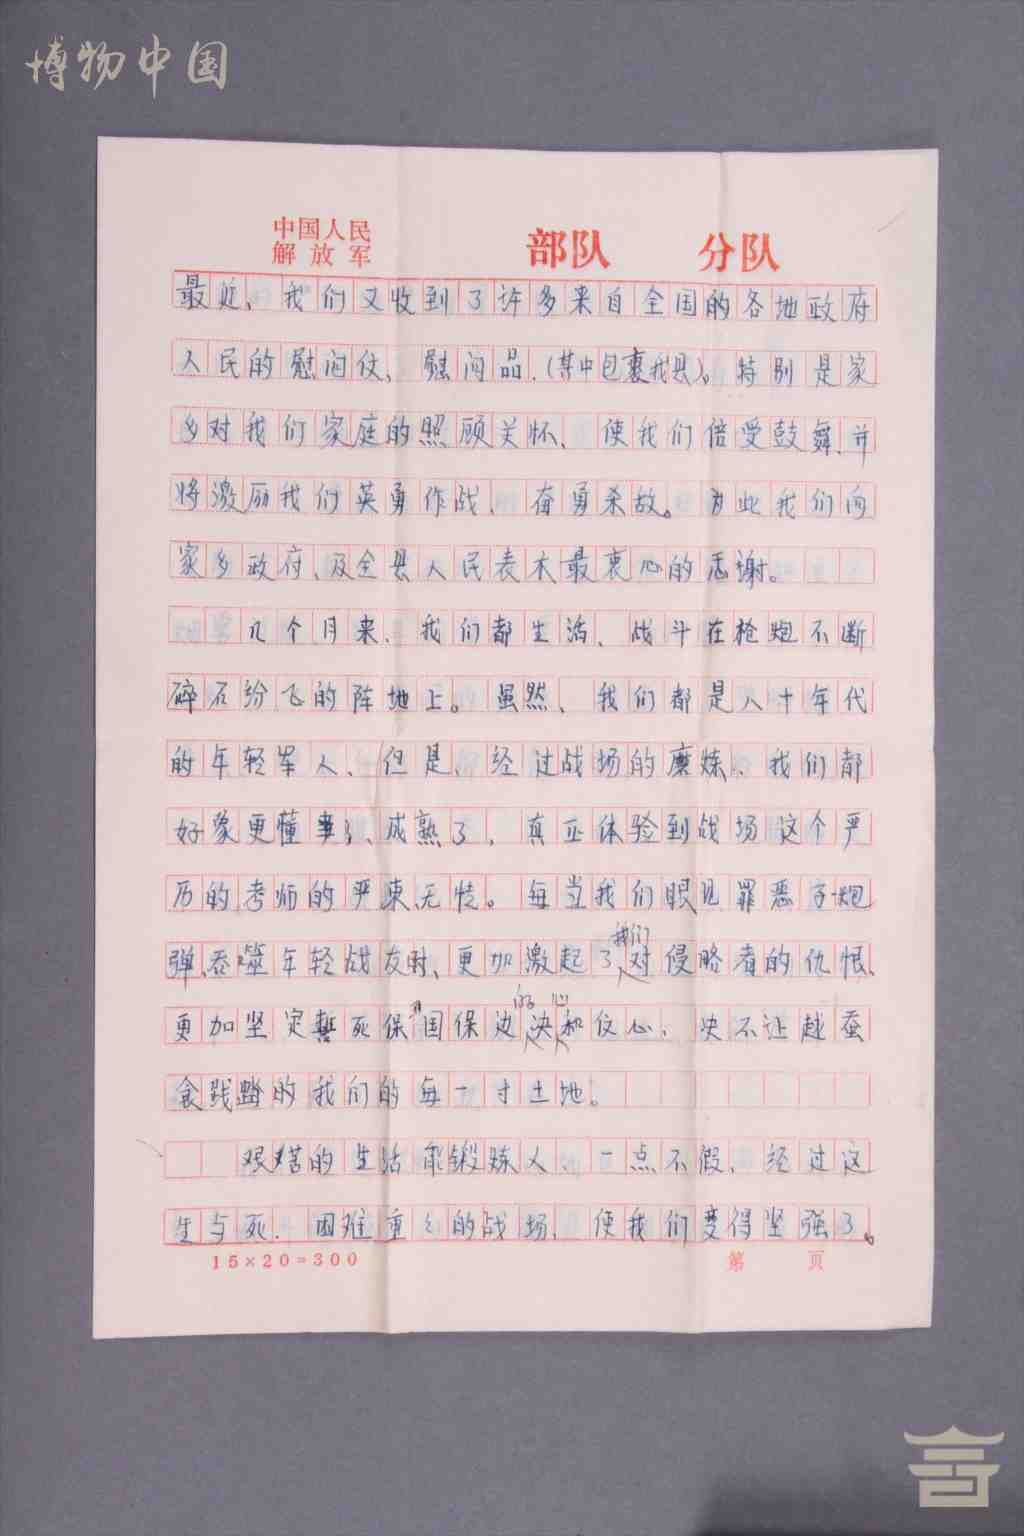 博物中国
中国人民
解放军
部队 分队
最近、我们又收到了许多来自全国的各地政府
人民的慰问仗、慰问品、(其中包裹我县)。特别是家
乡对我们家庭的照顾关怀、使我们倍受鼓舞、并
将激励我们英勇作战、奋勇杀敌。为此我们向
家乡政府、及全县人民表木最衷心的感谢。
几个月来、我们都生活、战斗在枪炮不断
碎石纷飞的阵地上。虽然、我们都是八十年代
的年轻军人、但是、经过战场的磨炼、我们都
好象更懂事了、成熟了, 真正体验到战场这个严
厉的考师的严束无情。每当我们眼见罪恶子炮
弹、吞噬年轻战友时、更加激起了我们对侵略者的仇恨、
更加坚定誓死保国保边的决心和仗心、决不让越蚕
食践踏的我们的每一寸土地。
艰苦的生活能锻炼人、一点不假、经过这
生与死、困难重重的战场、使我们变得坚强了。
15×20=300
第 页